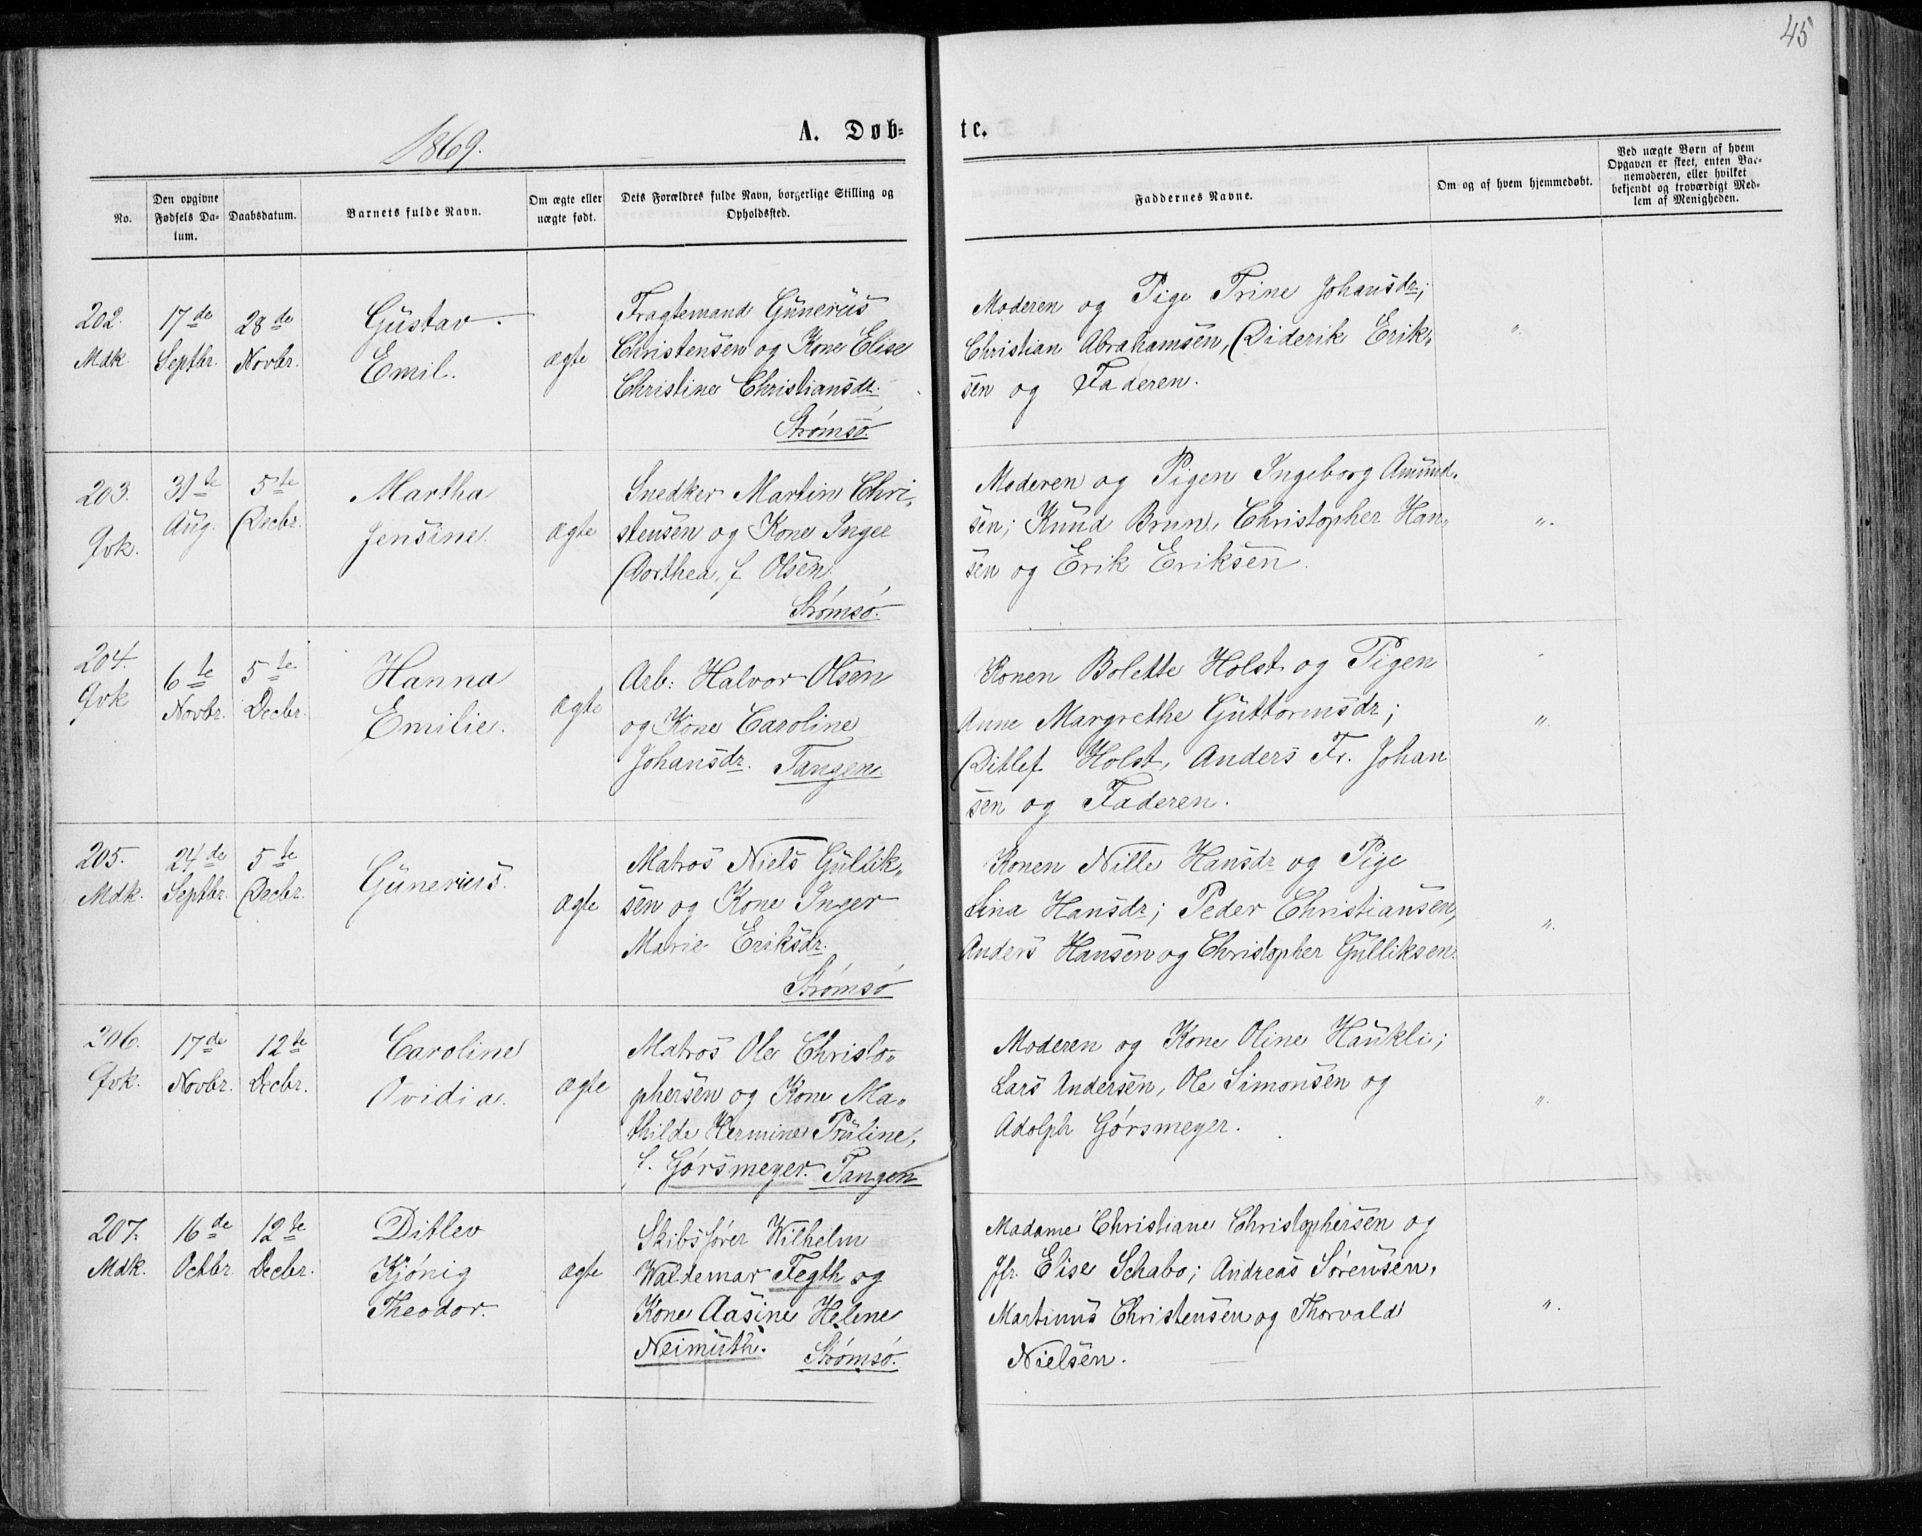 45
1869.
A. Døb-
te.
No.
Den opgivne Fødsels Da-
tum.
Daabsdatum.
Barnets fulde Navn.
Om ægte eller
uægte født.
Dets Forældres fulde Navn, borgerlige Stilling og
Opholdssted.
Faddernes Navne.
Om og af hvem hjemmedøbt.
Ved uægte Børn af hvem
Opgaven er skeet, enten Bar-
nemoderen, eller hvilket
bekjendt og troværdigt Med-
lem af Menigheden.
202.
Mdk
17de
Septbr.
28de
Novbr.
Gustav
Emil.
ægte
Fragtemand Gunerius
Christensen og Kone Elise
Christine Christiansdr.
Strømsø.
Moderen og Pige Trine Johansdr;
Christian Abrahamsen, Diderik Erik-
sen og Faderen.
"
203.
Qvk.
31te
Aug.
5te
Decbr.
Martha
Jensine.
ægte
Snedker Martin Chri-
stensen og Kone Inger
Dorthea, f. Olsen.
Strømsø.
Moderen og Pigen Ingeborg Amund-
sen; Knud Brun, Christopher Han-
sen og Erik Eriksen.
".
204.
Qvk
6te
Novbr.
5te
Decbr.
Hanna
Emilie.
ægte
Arb: Halvor Olsen
og Kone Caroline
Johansdr. Tangen
Konen Bolette Holst og Pigen
Anne Margrethe Guttormsdr;
Ditlef Holst, Anders Fr. Johan
sen og Faderen.
".
205.
Mdk.
24de
Septbr.
5te
Decbr.
Gunerius.
ægte
Matros Niels Gullik-
sen og Kone Inger
Marie Eriksdr.
Strømsø
Konen Nille Hansdr og Pige
Lina Hansdr; Peder Christiansen,
Anders Hansen og Christopher Gulliksen.
".
206.
Qvk.
17de
Novbr.
12te
Decbr.
Caroline
Ovidia.
ægte
Matros Ole Christo-
phersen og Kone Ma-
thilde Hermine Pauline,
f. Gørsmeyer. Tangen
Moderen og Kone Oline Haukli;
Lars Andersen, Ole Simonsen og
Adolph Gørsmeyer.
".
207.
Mdk.
16de
Octbr
12te
Decbr.
Ditlev
Kjønig
Theodor.
ægte
Skibsfører Wilhelm
Waldemar Fegth og
Kone Aasine Helene
Neimuth. Strømsø.
Madame Christiane Christophersen og
Jfr. Elise Schabo; Andreas Sørensen,
Martinus Christensen og Thorvald
Nielsen.
".